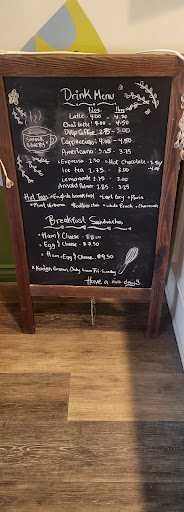 Drink Menu
Hot Iced
Latte 4.00 - 4.50
Chai Latte 4.00 - 4.50
Drip Coffee 2.75 - 3.00
Cappuccino 4.00 - 4.50
Americano 3.25 - 3.75
Espresso 2.50 Hot Chocolate 3.50/
4.00
Ice tea 2.75 - 3.00
Lemonade 2.75 3.00
Arnold Palmer 2.85 - 3.25
Hot Teas English Breakfast Earl Grey Paris
Mint Verbena White Peach Chamomile
Breakfast Sandwiches
Ham & Cheese $8.00
Egg & Cheese $7.50
Ham, Egg & Cheese $9.50
Only from Fri-Sunday
Have a nice day